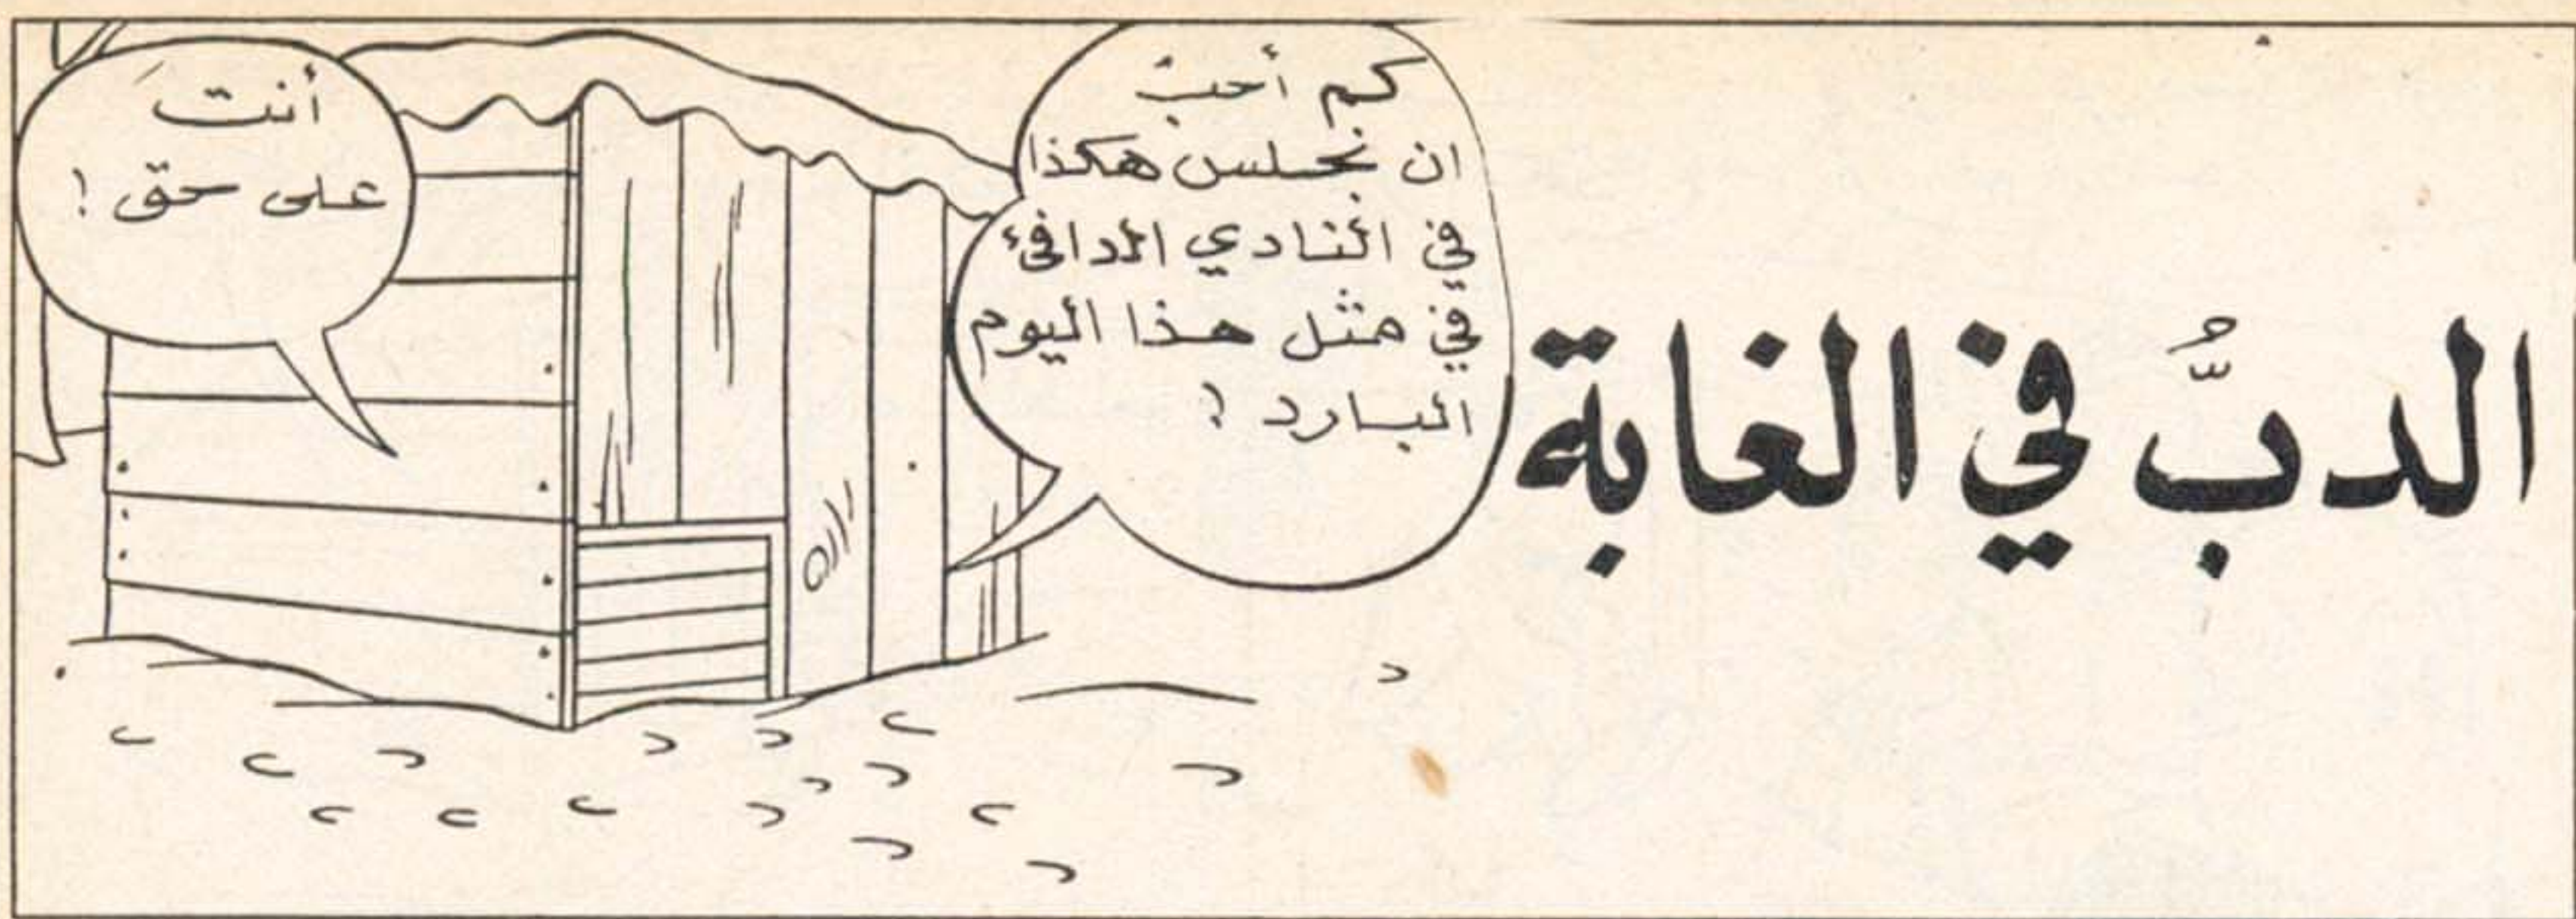 الدبُّ في الغابة
كم أحبّ
ان نجلس هكذا
في النادي الدافئ
في مثل هذا اليوم
البارد !
أنت
على حق !